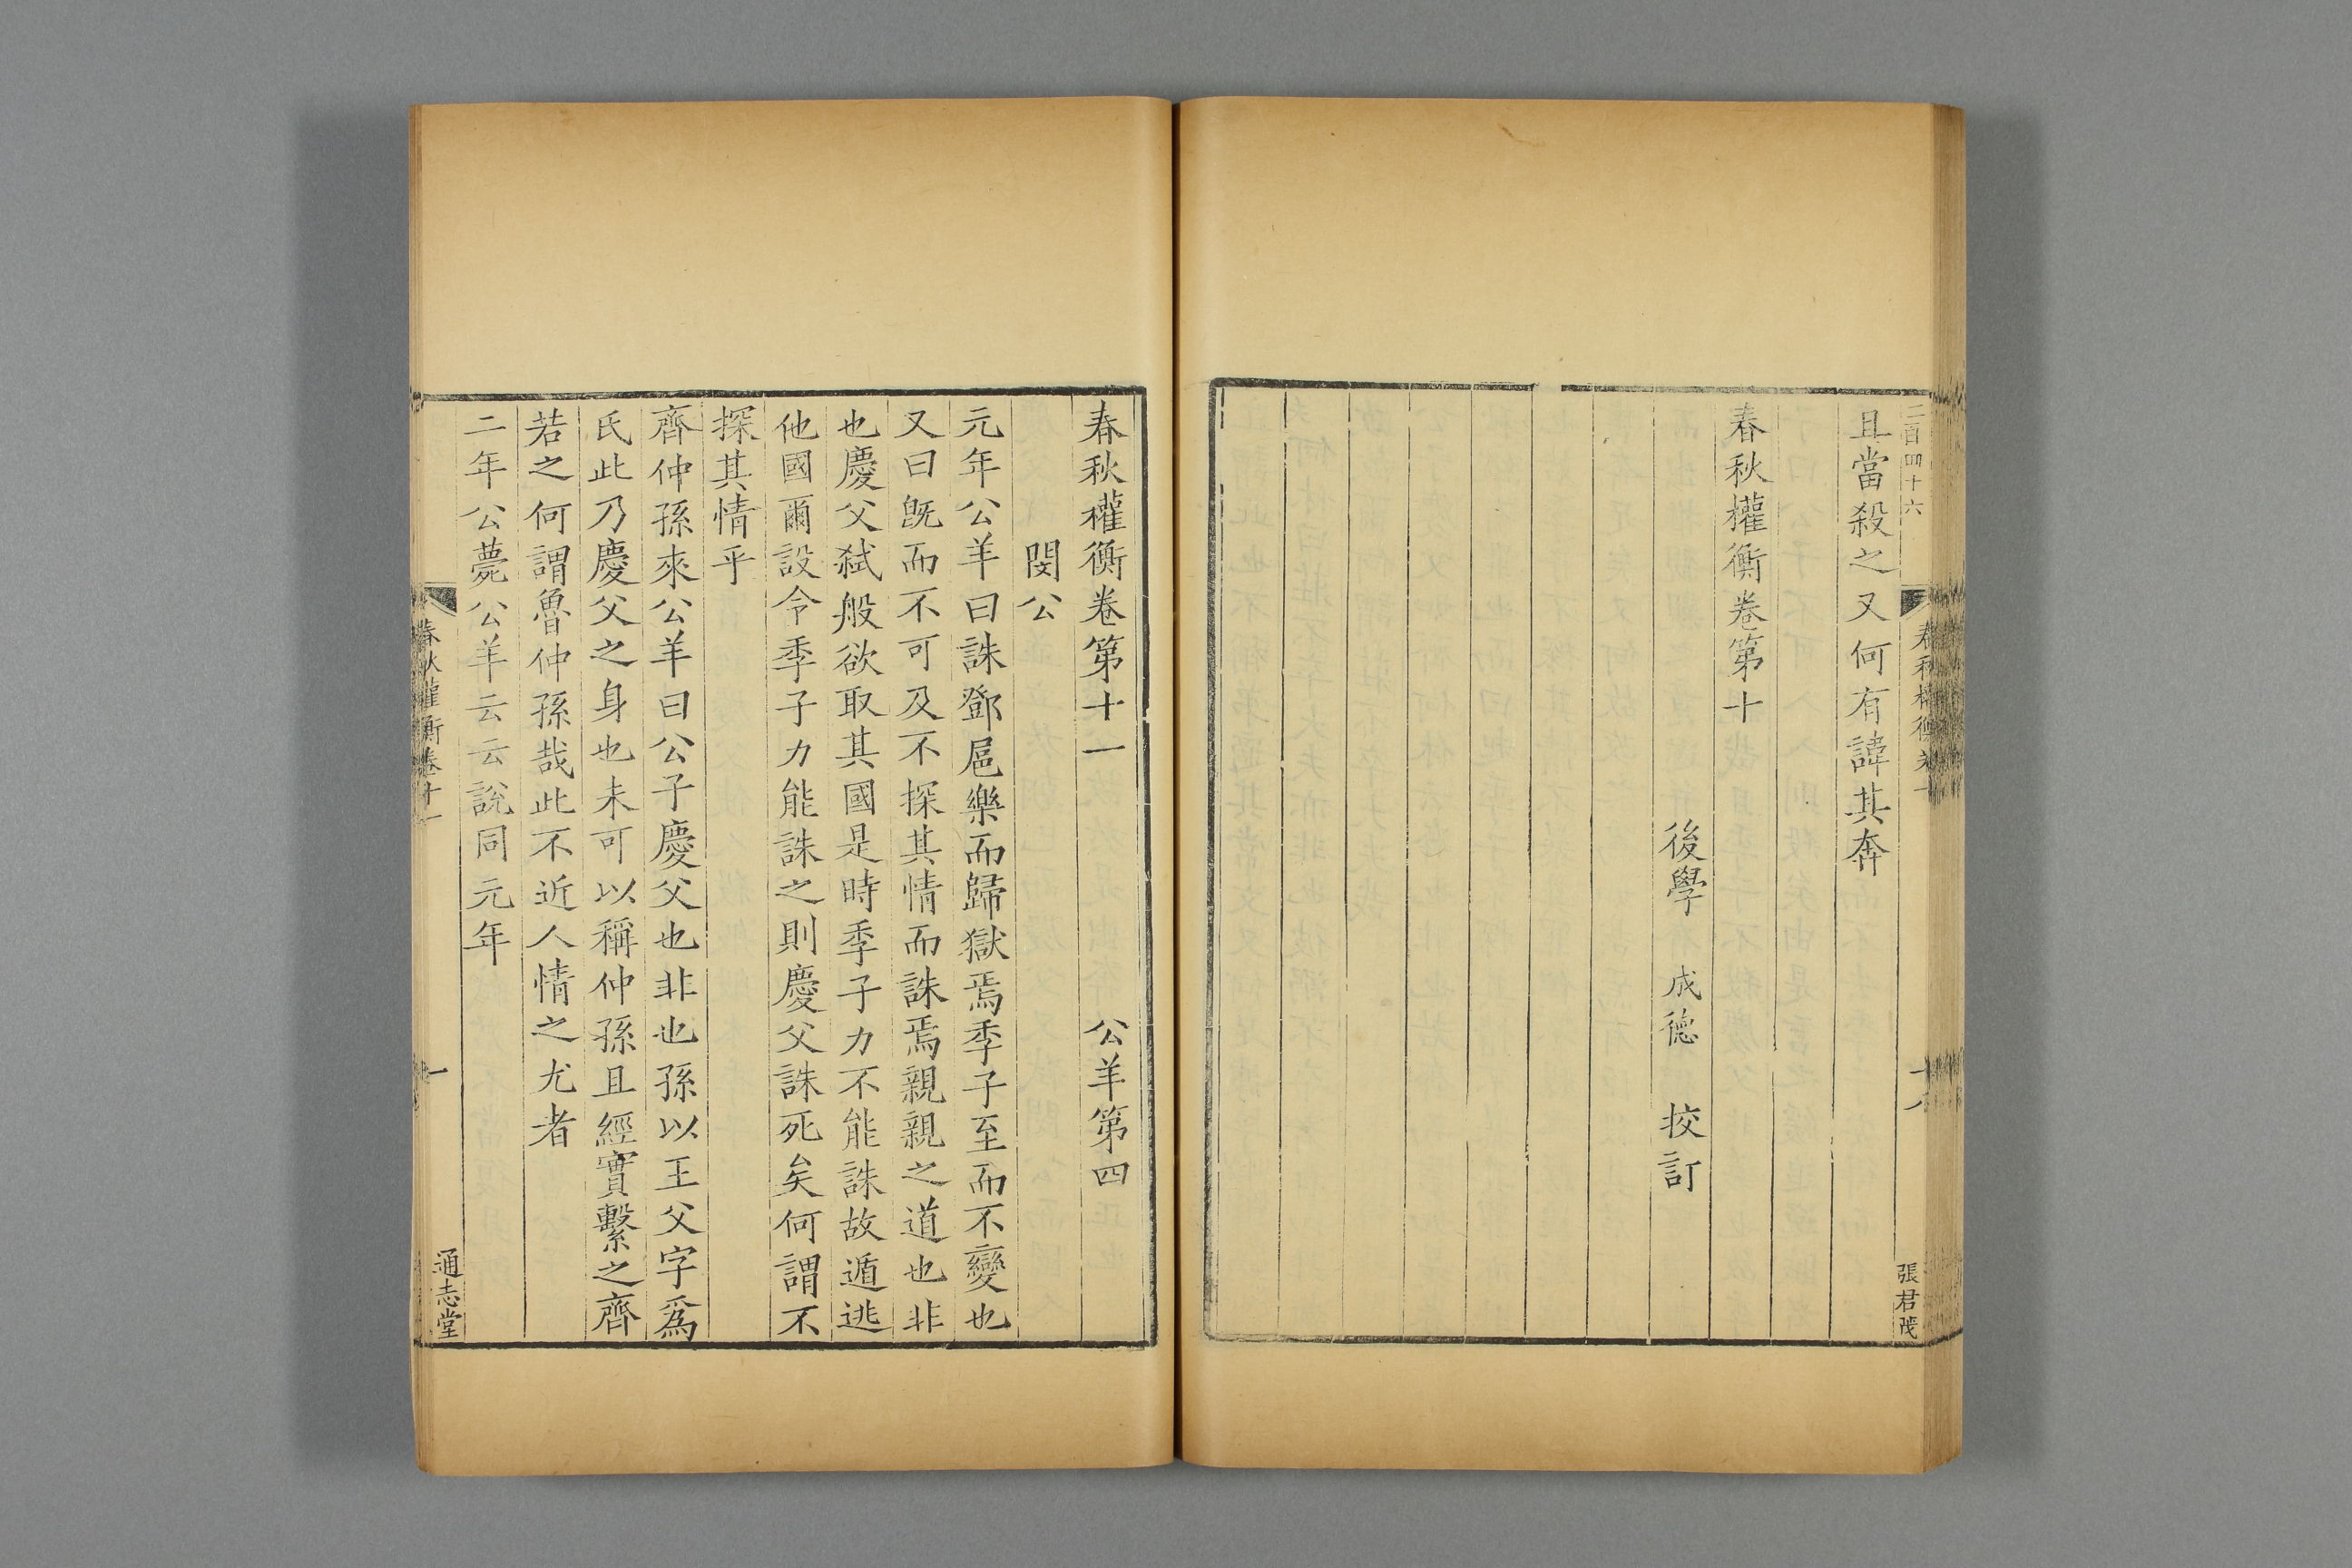 二百四十六
且當殺之又何有諱其奔
春秋權衡卷第十
後學 成德 挍訂
張君茂
春秋權衡卷第十一 公羊第四
閔公
元年公羊曰誅鄧扈樂而歸獄焉季子至而不變也
又曰旣而不可及不探其情而誅焉親親之道也非
也慶父弑般欲取其國是時季子力不能誅故遁逃
他國爾設令季子力能誅之則慶父誅死矣何謂不
探其情乎
齊仲孫來公羊曰公子慶父也非也孫以王父字爲
氏此乃慶父之身也未可以稱仲孫且經實繫之齊
若之何謂魯仲孫哉此不近人情之尤者
二年公薨公羊云云說同元年
春秋權衡卷十一
一
通志堂